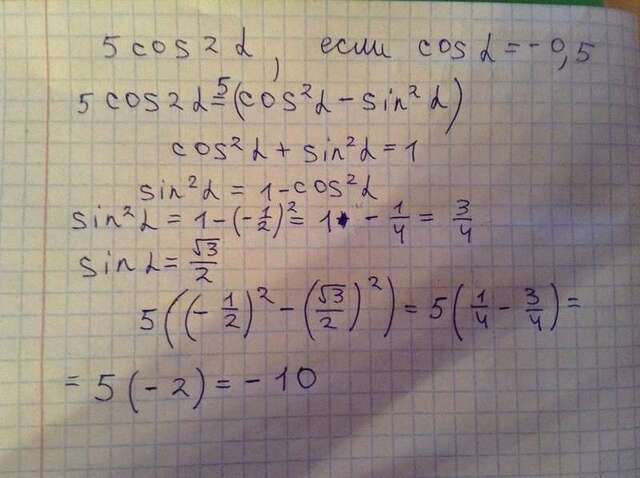 5 cos 2α, если cos α = -0,5
5 cos 2α = 5(cos²α - sin²α)
cos²α + sin²α = 1
sin²α = 1 - cos²α
sin²α = 1 - (-1/2)² = 1 - 1/4 = 3/4
sin α = √3/2
5((-1/2)² - (√3/2)²) = 5(1/4 - 3/4) =
= 5(-2) = -10